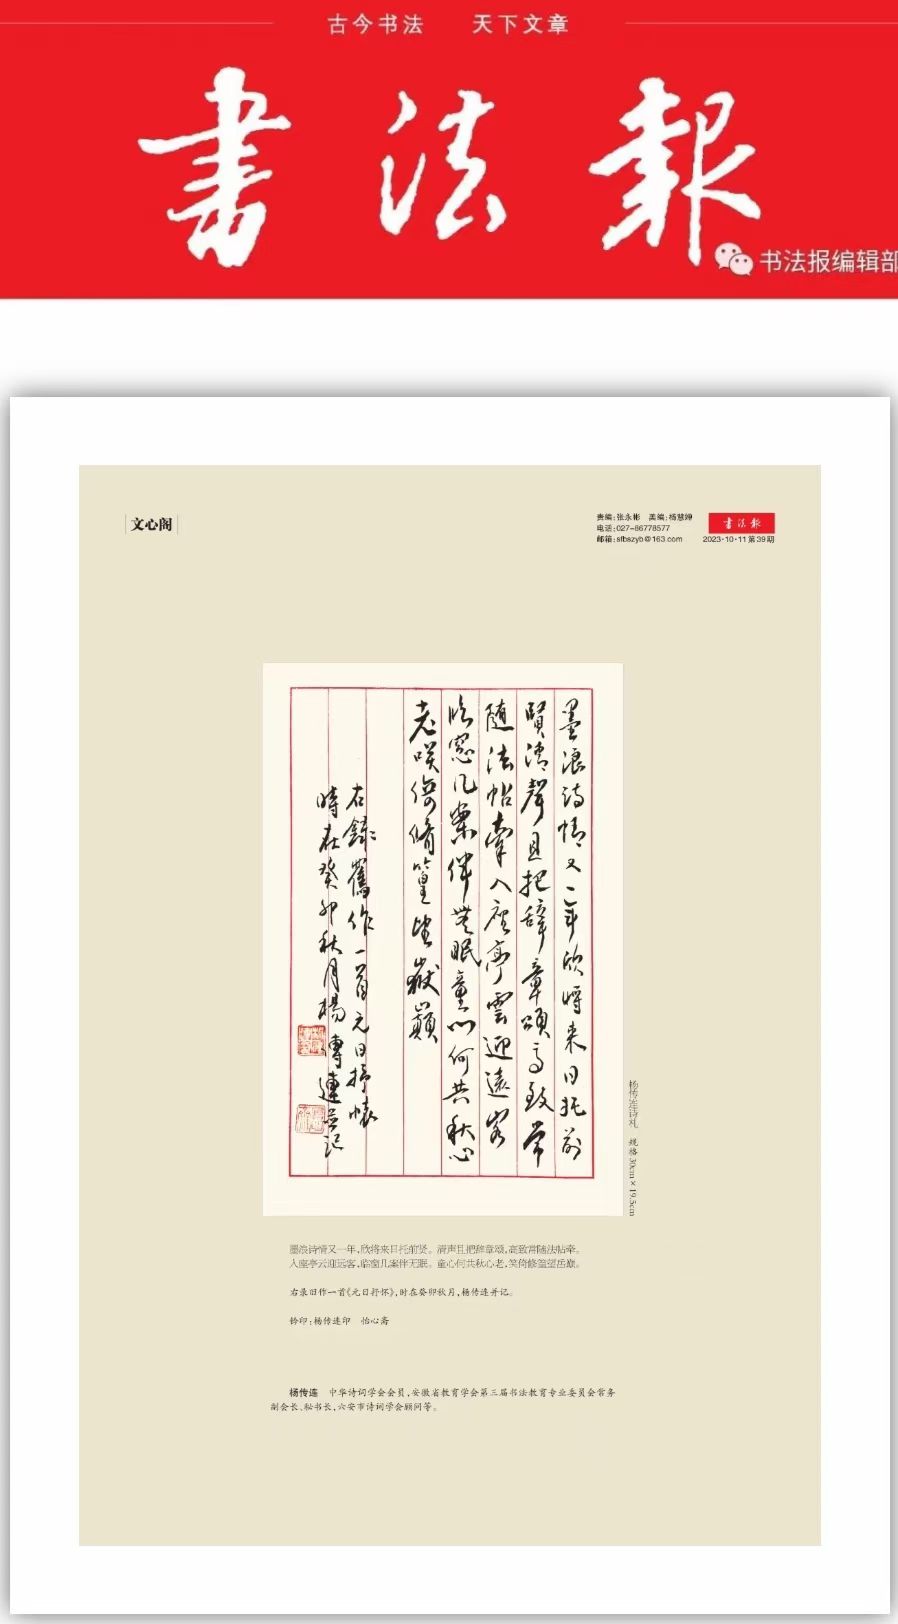 古今书法 天下文章
書法報
书法报编辑部
文心阁
责编:张永彬 美编:杨慧婷
电话:027-86778577
邮箱:sfbszyb@163.com
書法報
2023·10·11第39期
墨浪诗情又一年欣將来日托前
賢清聲且把辞章頌高致常
随法帖牵入座亭雲迎遠客
临窓几案伴無眠童心何共秋心
老咲倚脩篁望嶽巔
右録舊作一首元日抒懐
時在癸卯秋月楊傳連并记
杨传连诗札 规格30cm×19.5cm
墨浪诗情又一年,欣将来日托前贤。清声且把辞章颂,高致常随法帖牵。
入座亭云迎远客,临窗几案伴无眠。童心何共秋心老,笑倚修篁望岳巅。
右录旧作一首《元日抒怀》,时在癸卯秋月,杨传连并记。
钤印:杨传连印 怡心斋
杨传连 中华诗词学会会员,安徽省教育学会第三届书法教育专业委员会常务
副会长、秘书长,六安市诗词学会顾问等。